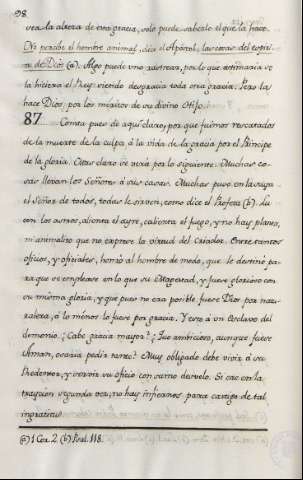 98.
vea la alteza de esta gracia, solo puede saberlo el que la hace.
No percibe el hombre animal, dice el Apóstol, las cosas del espiri-
tu de Dios (a). Algo puede uno rastrear, por lo que estimaria se
le hiciera el Rey: siendo desgracia toda otra gracia. Pero la
hace Dios, por los méritos de su divino Hijo.
87 Consta pues de aquí claro, por que fuimos rescatados
de la muerte de la culpa á la vida de la gracia por el Principe
de la gloria. Mas claro se verá por lo siguiente. Muchas co-
sas llevan los Señores á sus casas. Muchas puso en la suya
el Señor de todos, todas le sirven, como dice el Profeta (b). Lu-
cen los astros, alienta el ayre, calienta el fuego, y no hay planta,
ni animalito que no exprese la virtud del Criador. Entre tantos
oficios, y oficiales, honró al hombre de modo, que le destinó pa-
ra que se emplease en lo que su Magestad, y fuese glorioso con
su misma gloria, y que pues no era posible fuese Dios por natu-
raleza, á lo ménos lo fuese por gracia. Y esto á un Esclavo del
demonio. ¿Cabe gracia mayor? ¿Tan ambicioso, aunque fuese
Aman, osaria pedir tanto? Muy obligado debe vivir á su
Redentor, y servir su oficio con sumo desvelo. Si cae en la
traycion segunda vez, no hay infiernos para castigo de tal
ingratitud.
(a) 1 Cor. 2. (b) Psal. 118.